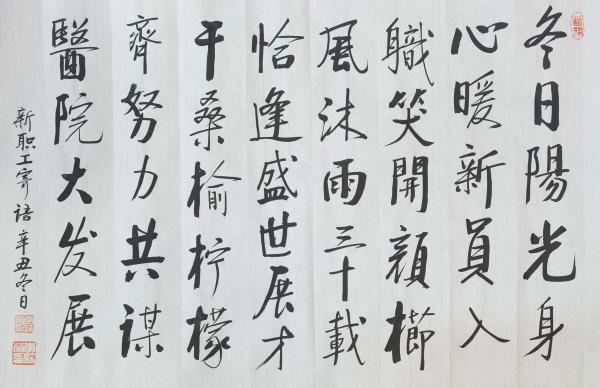 冬日陽光身
心暖新員入
職笑開顔櫛
風沐雨三十載
恰逢盛世展才
干桑榆柠檬
齊努力共謀
醫院大发展
新职工寄语辛丑冬日